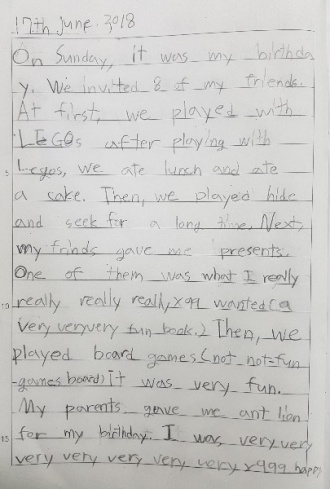 17th June, 2018
On Sunday, it was my birthda
y. We invited 8 of my friends.
At first, we played with
LEGOs after playing with
5 Legos, we ate lunch and ate
a cake. Then, we played hide
and seek for a long time. Next,
my frinds gave me presents.
One of them was what I really
10 really really really x99 wanted (a
very veryvery fun book.) Then, we
played board games (not not-fun
-games board) it was very fun.
My parents gave me ant lion
15 for my birthday. I was very very
very very very very very x999 happy